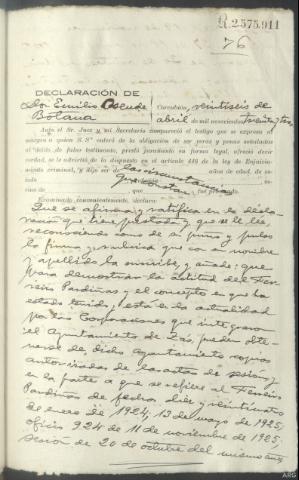 R.2.575.911
76
DECLARACIÓN DE
Don Emilio Osende
Botana
Corcubión, veintiseis de
abril de mil novecientos treinta y tres
Ante el Sr. Juez y mi Secretario compareció el testigo que se expresa al
margen a quien S. Sª enteró de la obligación de ser veraz y penas señaladas
al delito de falso testimonio, prestó juramento en forma legal, ofreció decir
verdad, se le advirtió de lo dispuesto en el artículo 446 de la ley de Enjuicia-
miento criminal, y dijo ser de años de edad, de estado
circunstancias
que constan
Examinado convenientemente, declara:
Que se afirma y ratifica en la decla-
ración que tiene prestada y que se le lee,
reconociendo como de su puño y pulso
la firma y rúbrica que con su nombre
y apellido la suscribe, y añade: que
para demostrar la actitud del Ferreiro
Pardiñas y el concepto en que ha
estado tenido, está en la actualidad
por las Corporaciones que integraron
el Ayuntamiento de Zas, pueden obte-
nerse de dicho Ayuntamiento copias
autorizadas de las actas de sesión, en
la parte a que se refiere al Ferreiro
Pardiñas de fechas diez y veinticuatro
de enero de 1924, 13 de mayo de 1925,
oficio 924 de 11 de noviembre de 1925;
sesión de 20 de octubre del mismo año
ARG